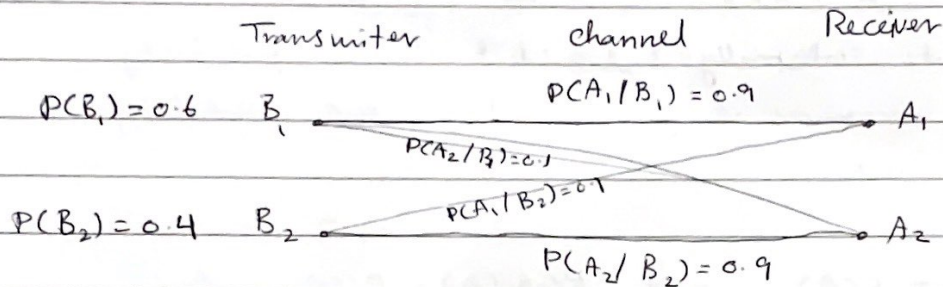 Transmiter channel Receiver
P(A₁/B₁) = 0.9
P(B₁) = 0.6 B₁ A₁
P(A₂/B₁) = 0.1
P(A₁/B₂) = 0.1
P(B₂) = 0.4 B₂ A₂
P(A₂/B₂) = 0.9